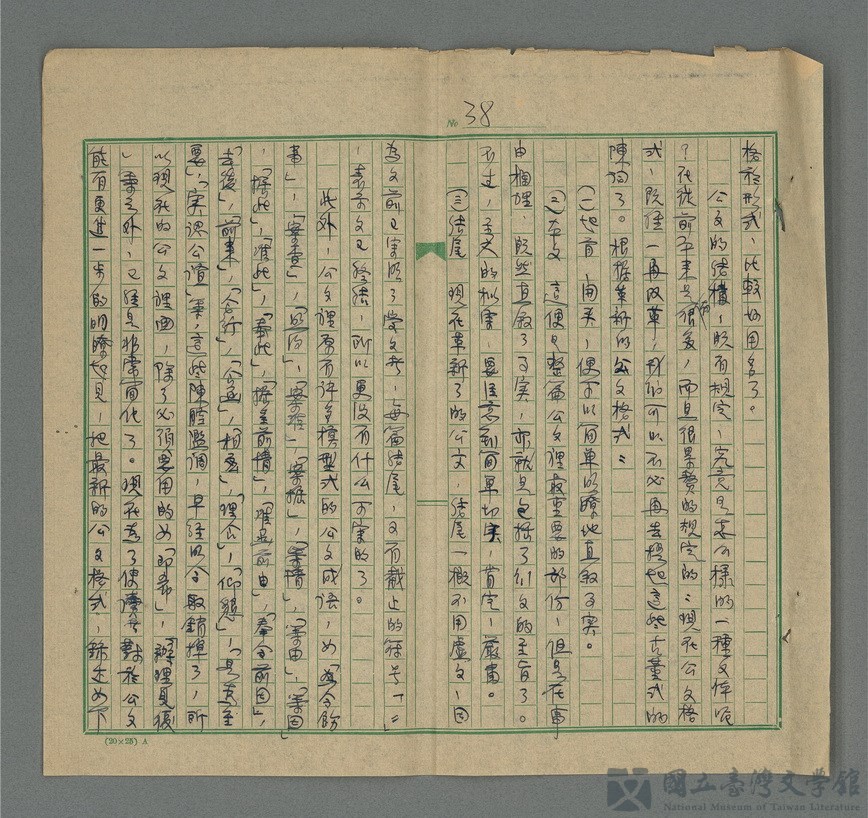 No 38
格和形式，比較妙用多了。
公文的結構，既有規定，究竟是怎么樣的一種文体呢
？在從前平來是很多，而且很累贅的規定的：現在公文格
式，既經一再改革，我們可以不必再去提起這些古董式的
陳詞了。根據革新的公文格式：
(一)起首 開头，便可以簡單明瞭地直敘事实。
(二)本文 這便是整篇公文裡最重要的部份，但是在事
由相埋，既然直敘了事实，亦就是包括了衍文的主旨了。
不过，主文的叙实，要注意到簡單切実，肯定，嚴肅。
(三)結尾 現在革新了的公文，結尾一概不用虛文，因
為文前已寫明了受文者，每篇結尾，又有截止的符号「」
，表示文已終結，所以更沒有什么可寫的了。
此外，公文裡原有许多模型式的公文成语，如「為令飭
事」，「案查」，「明以」，「案准」「案據」，「案情」，「案由」，「案因
，「據此」，「准此」，「奉此」，「據呈前情」，「准是前由」，「奉令前因」，
「去後」，「前來」，「令行」，「令函」，「相應」，「理合」，「仰懇」，「是為至
要」，「实深公誼」等，這些陳腔濫调，早經明令取銷掉了，所
以現在的公文裡面，除了必須要用的如「即希」，「辦理見復
」等之外，已經是非常簡化了。現在為了使讀者對於公文
能有更進一步的明瞭起見，把最新的公文格式，錄述如下
(20×25) A
國立臺灣文學館
National Museum of Taiwan Literature